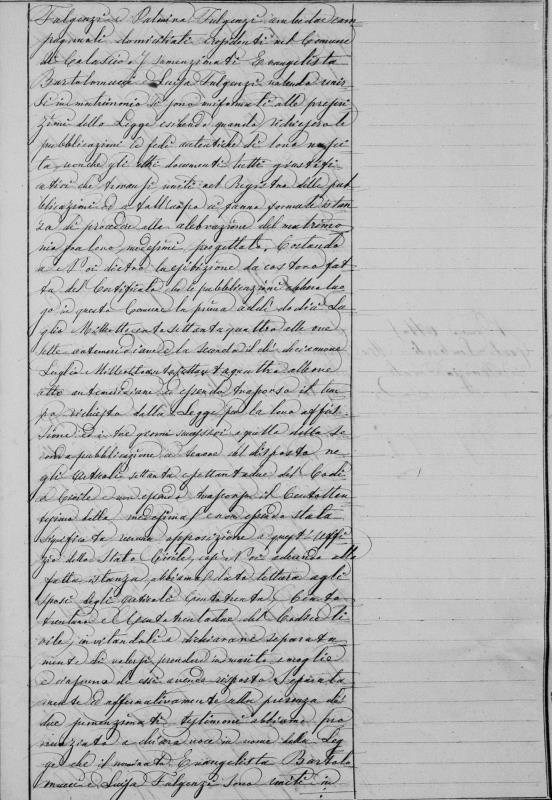 Fulgenzi e Palmina Fulgenzi ambidue cam
pagnuoli domiciliati e residenti nel Comune
di Calascio. I summenzionati Evangelista
Bartolomucci e Luisa Fulgenzi volendo unir
si in matrimonio si sono uniformati alle prescri
zioni della Legge esibendo quando richiesero le
pubblicazioni le fedi autentiche di loro nasci
ta, nonchè gli altri documenti tutti giustifi
cativi che trovansi uniti nel Registro delle pub
blicazioni ed a tall'uopo ci fanno formale istan
za di procedere alla celebrazione del matrimo
nio fra loro medesimi progettato. Costando
a Noi dietro la esibizione da costoro fat
ta del Certificato che le pubblicazioni ebbero luo
go in questo Comune la prima addì dodici Lu
glio Millottocentosettantaquattro alle ore
sette antemeridiane e la seconda il dì diecinove
Luglio Millottocentosettantaquattro alle ore
otto antimeridiane ed essendo trascorso il tem
po richiesto dalla Legge per la loro affis
sione ed i tre giorni successivi a quello della se
conda pubblicazione a tenore del disposto ne
gli articoli settanta e settantadue del Codi
ce Civile e non essendo trascorso il Centottan
tesimo della medesima e non essendo stata
significata veruna opposizione a quest'Uffi
zio dello Stato Civile, così Noi aderendo alla
fatta istanza abbiamo data lettura agli
sposi degli articoli Centotrenta, Cento
trentuno e Centotrentadue del Codice Ci
vile, invitandoli a dichiarare separata
mente di volersi prendere in marito e moglie
e ciascuno di essi avendo risposto separata
mente ed affermativamente alla presenza di
due summenzionati testimoni abbiamo pro
nunziato a chiara voce in nome della Leg
ge che il nominato Evangelista Bartolo
mucci e Luisa Fulgenzi sono uniti in